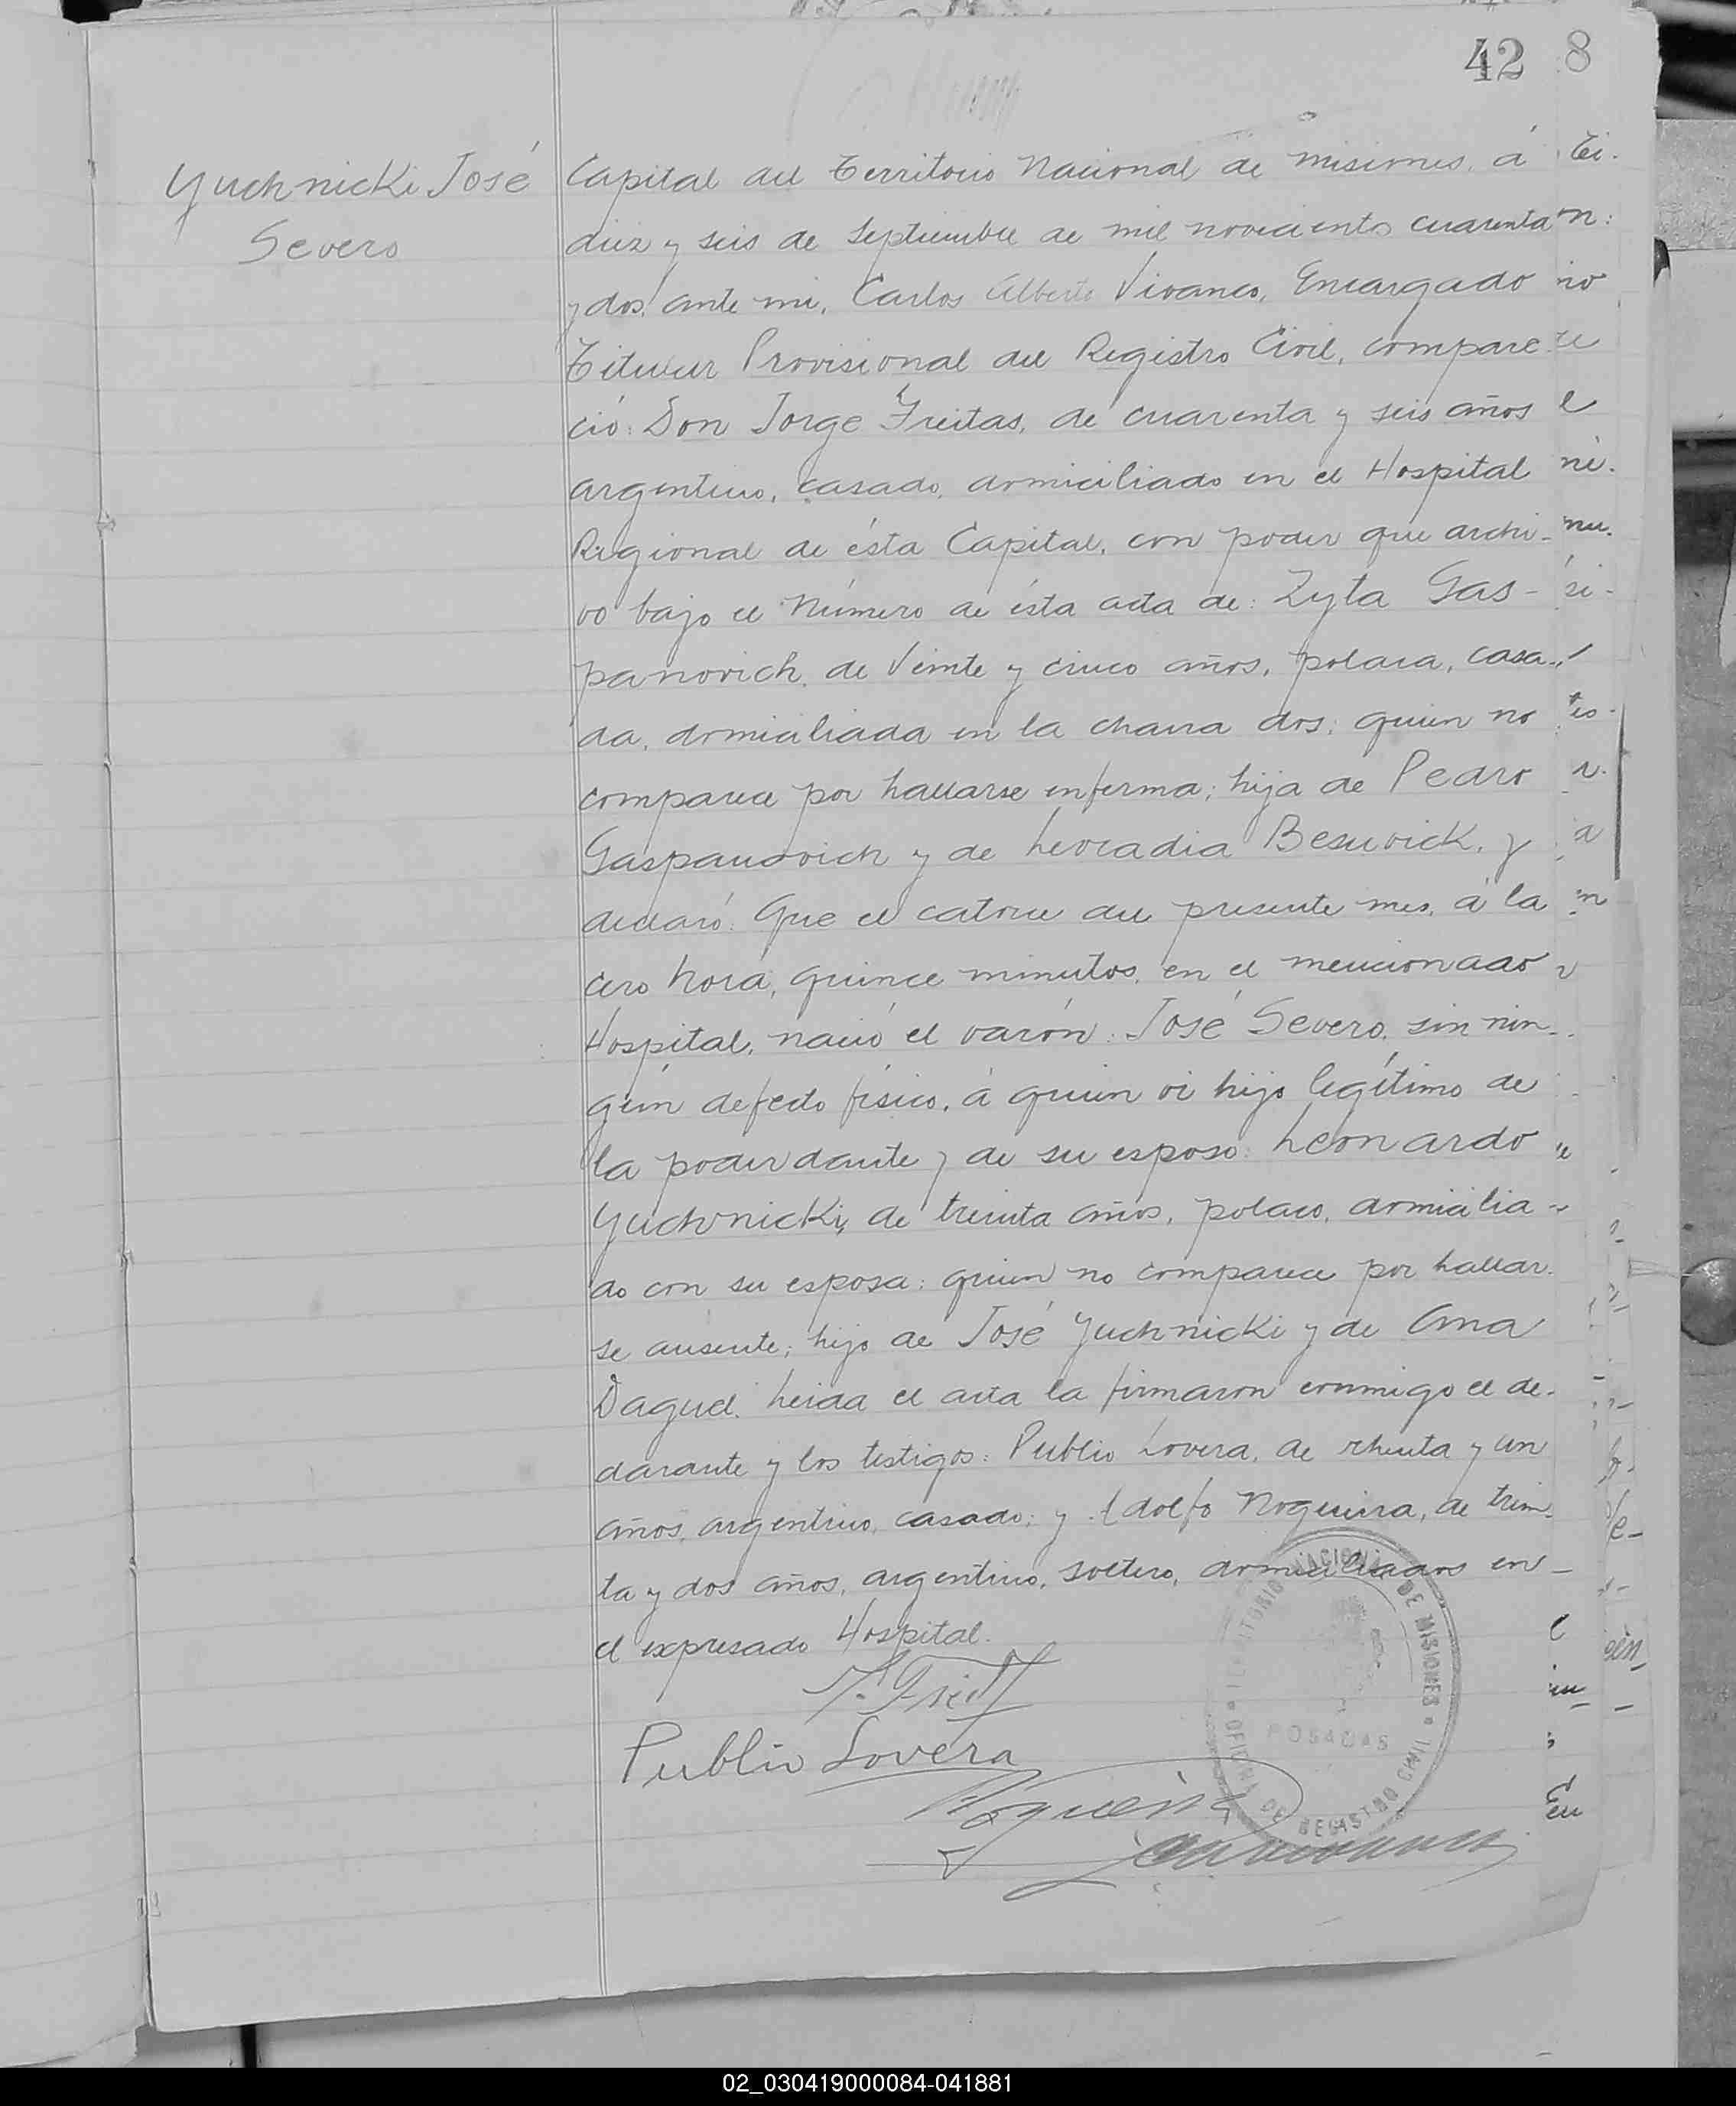 42 8
Yuchnicki José
Severo
Capital del Territorio Nacional de Misiones, á
diez y seis de Septiembre de mil novecientos cuarenta
y dos, ante mi, Carlos Alberto Vivanco, Encargado
Titular Provisional del Registro Civil, compare
ció: Don Jorge Freitas, de cuarenta y seis años
argentino, casado, domiciliado en el Hospital
Regional de ésta Capital, con poder que archi-
vo bajo el Número de ésta acta de: Zyta Gas-
panovich, de Veinte y cinco años, polaca, casa-
da, domiciliada en la chacra dos; quien no
comparece por hallarse enferma; hija de Pedro
Gaspanovich y de Leocadia Besuvick, y
declaró: Que el catorce del presente mes, á la
cero hora, quince minutos, en el mencionado
Hospital, nació el varón: José Severo, sin nin-
gún defecto físico, á quien vi hijo legítimo de
la poderdante y de su esposo: Leonardo
Yuchnicki, de treinta años, polaco, domicilia-
do con su esposa; quien no comparece por hallar-
se ausente; hijo de José Yuchnicki y de Ana
Daguel. Leida el acta la firmaron conmigo el de-
clarante y los testigos: Publio Lovera, de treinta y un
años, argentino, casado; y Adolfo Nogueira, de trein-
ta y dos años, argentino, soltero, domiciliados en
el expresado Hospital.
J. Freit
Publio Lovera
Nogueira
TERRITORIO NACIONAL DE MISIONES
POSADAS
OFICINA DE REGISTRO CIVIL
02_030419000084-041881